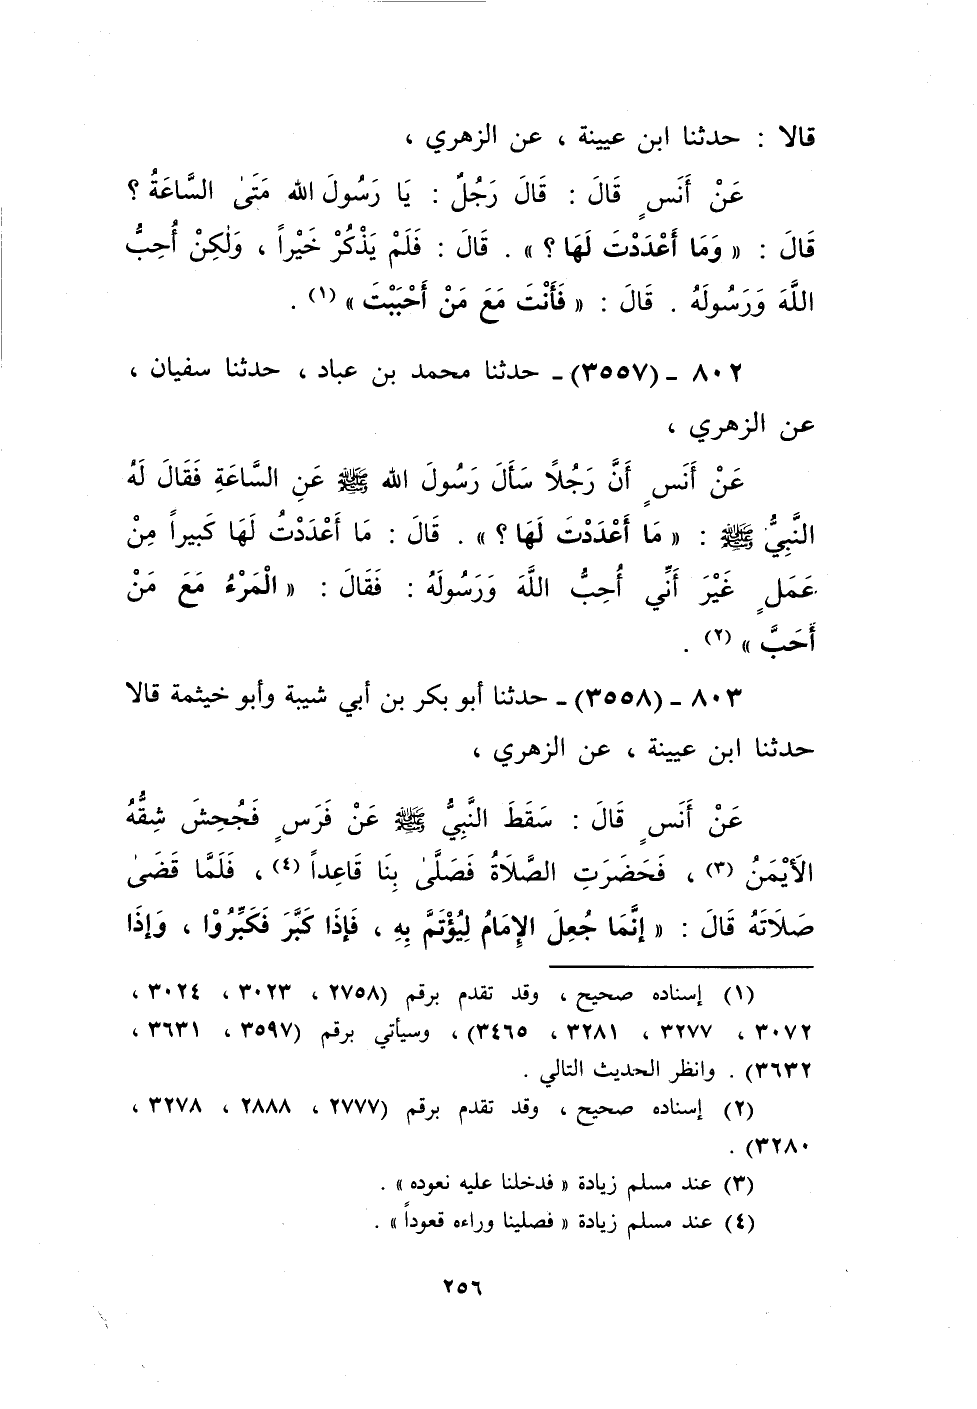 قالا : حدثنا ابن عيينة ، عن الزهري ،
عَنْ أَنَسٍ قَالَ : قَالَ رَجُلٌ : يَا رَسُولَ الله مَتَىٰ السَّاعَةُ ؟
قَالَ : « وَمَا أَعْدَدْتَ لَهَا ؟ » . قَالَ : فَلَمْ يَذْكُرْ خَيْراً ، وَلٰكِنْ أُحِبُّ
اللَّهَ وَرَسُولَهُ . قَالَ : « فَأَنْتَ مَعَ مَنْ أَحْبَبْتَ » (١) .
٨٠٢ ـ (٣٥٥٧) ـ حدثنا محمد بن عباد ، حدثنا سفيان ،
عن الزهري ،
عَنْ أَنَسٍ أَنَّ رَجُلاً سَأَلَ رَسُولَ الله ﷺ عَنِ السَّاعَةِ فَقَالَ لَهُ
النَّبِيُّ ﷺ : « مَا أَعْدَدْتَ لَهَا ؟ » . قَالَ : مَا أَعْدَدْتُ لَهَا كَبِيراً مِنْ
عَمَلٍ غَيْرَ أَنِّي أُحِبُّ اللَّهَ وَرَسُولَهُ : فَقَالَ : « الْمَرْءُ مَعَ مَنْ
أَحَبَّ » (٢) .
٨٠٣ ـ (٣٥٥٨) ـ حدثنا أبو بكر بن أبي شيبة وأبو خيثمة قالا
حدثنا ابن عيينة ، عن الزهري ،
عَنْ أَنَسٍ قَالَ : سَقَطَ النَّبِيُّ ﷺ عَنْ فَرَسٍ فَجُحِشَ شِقُّهُ
الأَيْمَنُ (٣) ، فَحَضَرَتِ الصَّلَاةُ فَصَلَّىٰ بِنَا قَاعِداً (٤) ، فَلَمَّا قَضَىٰ
صَلَاتَهُ قَالَ : « إِنَّمَا جُعِلَ الإِمَامُ لِيُؤْتَمَّ بِهِ ، فَإِذَا كَبَّرَ فَكَبِّرُوْا ، وَإِذَا
(١) إسناده صحيح ، وقد تقدم برقم (٢٧٥٨ ، ٣٠٢٣ ، ٣٠٢٤ ،
٣٠٧٢ ، ٣٢٧٧ ، ٣٢٨١ ، ٣٤٦٥) ، وسيأتي برقم (٣٥٩٧ ، ٣٦٣١ ،
٣٦٣٢) . وانظر الحديث التالي .
(٢) إسناده صحيح ، وقد تقدم برقم (٢٧٧٧ ، ٢٨٨٨ ، ٣٢٧٨ ،
٣٢٨٠) .
(٣) عند مسلم زيادة « فدخلنا عليه نعوده » .
(٤) عند مسلم زيادة « فصلينا وراءه قعوداً » .
٢٥٦